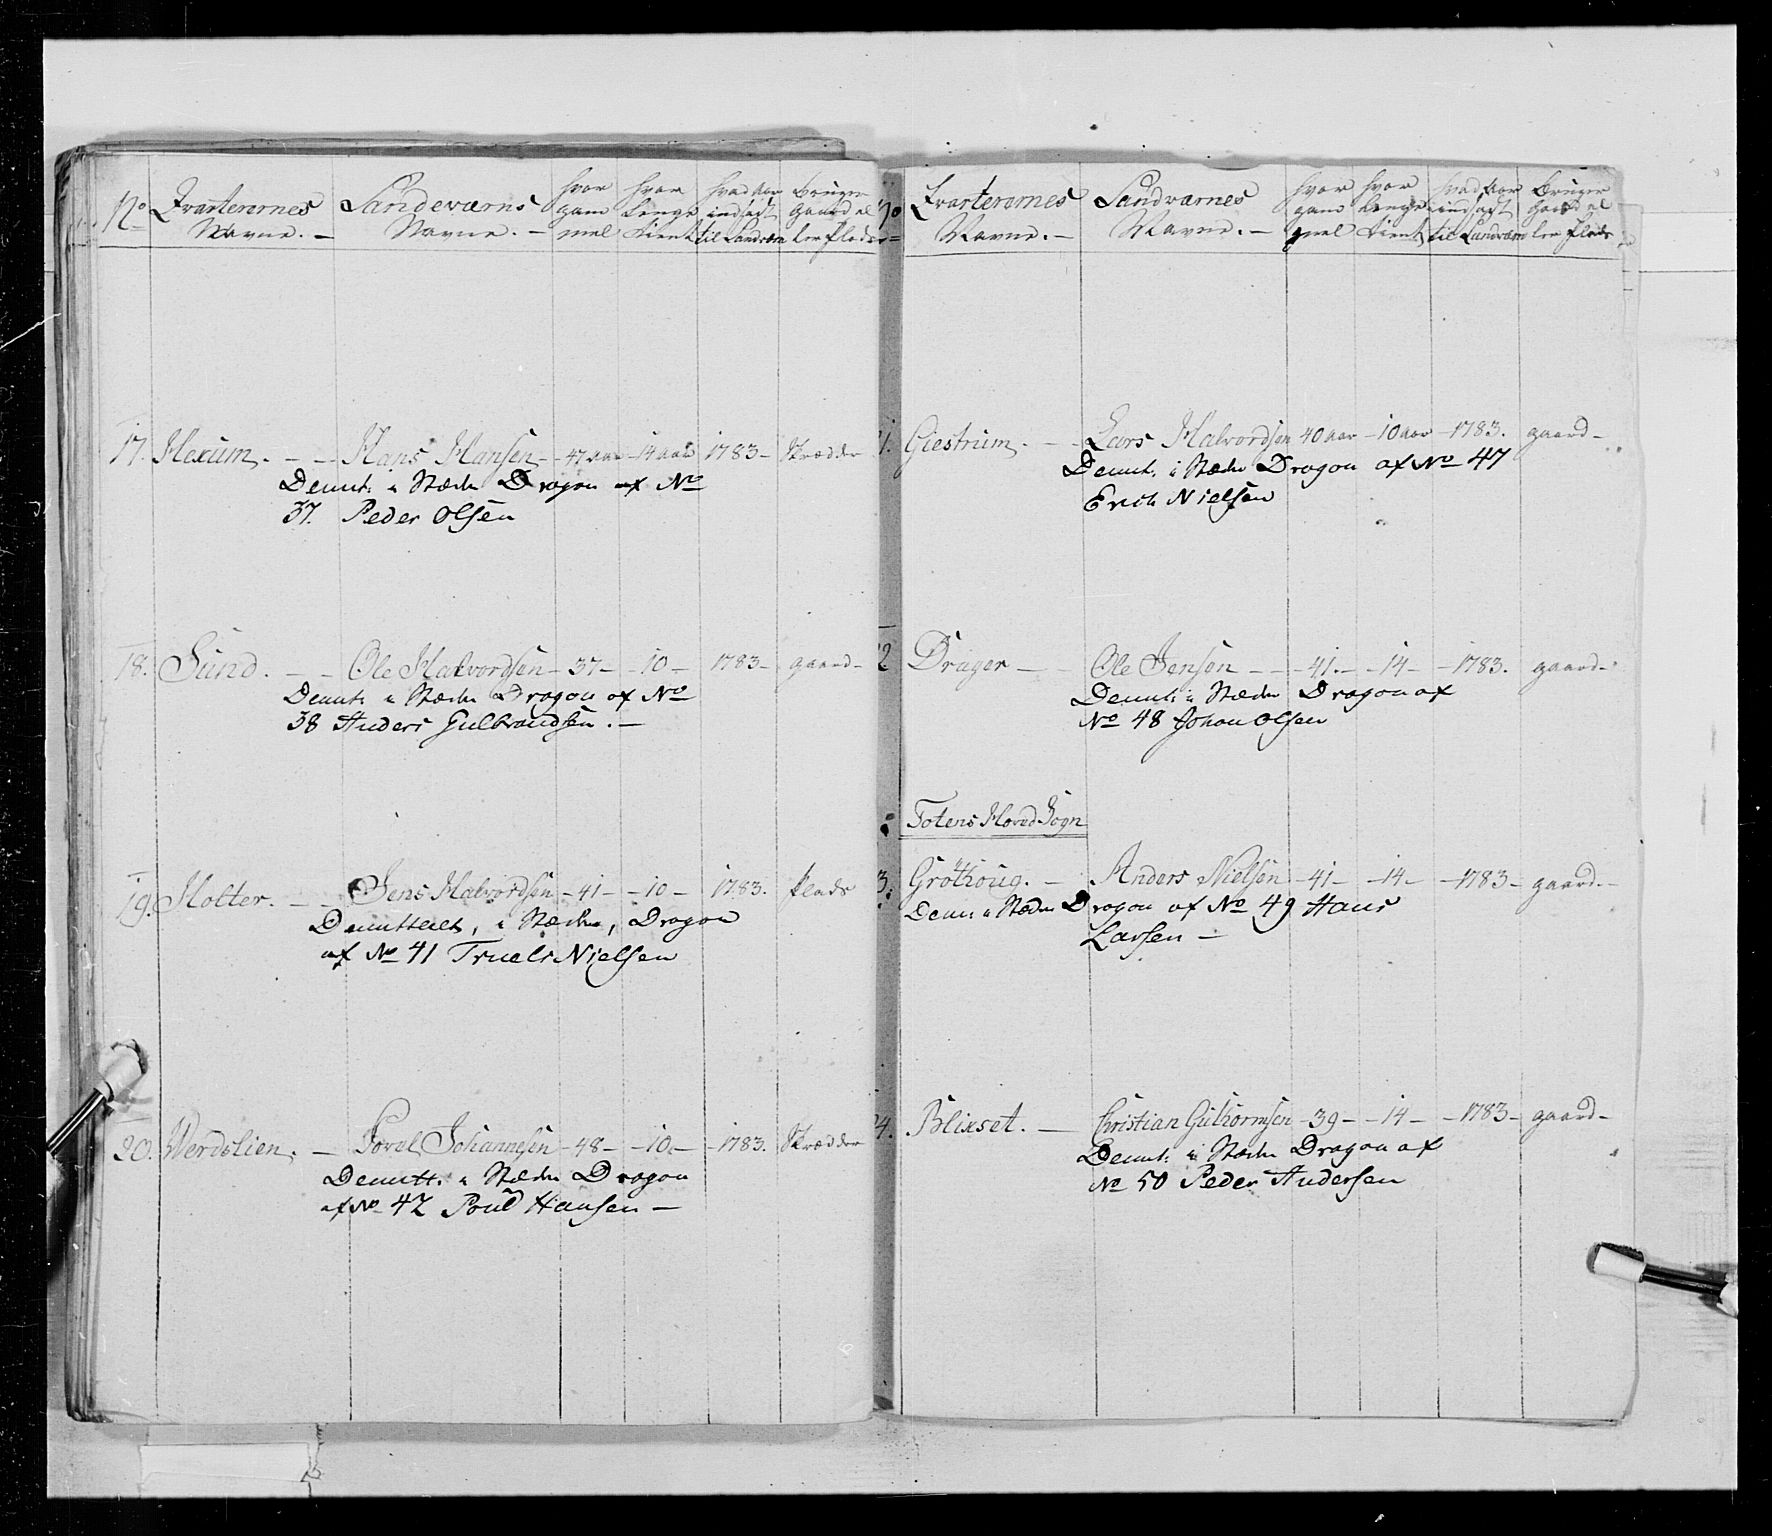 No Qvarterernes Navne. - Landeværns Navne. - hvor gammel hvor lenge tient hvad aar indsadt til Landværn bruger Gaard eller plads
17. Hexum. - - Hans Hansen - 47 aar - 14 aar 1783 - Skrædder
Demt: i Stæden Dragon af No
37. Peder Olsen
18. Sund. - - Ole Halvordsen - 37 - - 10 - 1783 - gaard -
Demt: i Stæden Dragon af No
38 Anders Gulbrandsen. -
19. Holter. - - Jens Halvordsen - 41 - - 10 - 1783. plads
Demitteret, i Stæden, Dragon
af No 41 Truels Nielsen
20. Werdslien. - Povel Johannesen - 48 - - 10 - - 1783. Skrædder
Demitt. i Stæden Dragon
af No 42 Poul Hansen -
No Qvarterernes Navne. - Landværnes Navne. - hvor gammel hvor lenge tient hvad aar indsadt til Landværn bruger Gaard eller plads
1. Giestrum. - - Lars Halvordsen 40 aar - 10 aar - 1783. gaard -
Demt. i Stæden Dragon af No 47
Erich Nielsen
2 Drager - Ole Jensen - - 41. - - 14 - - 1783. gaard -
Demt: i Stæden Dragon af
No 48 Johan Olsen
Totens Hoved Sogn
3. Gröthoug. - Anders Nielsen - 41 - - 14 - - 1783 - gaard. -
Dem: i Stæden Dragon af No 49 Hans
Larsen -
4. Blixset. - Christian Guthormsen - 39 - - 14 - - 1783 - gaard -
Demt: i Stæden Dragon af
No 50 Peder Andersen